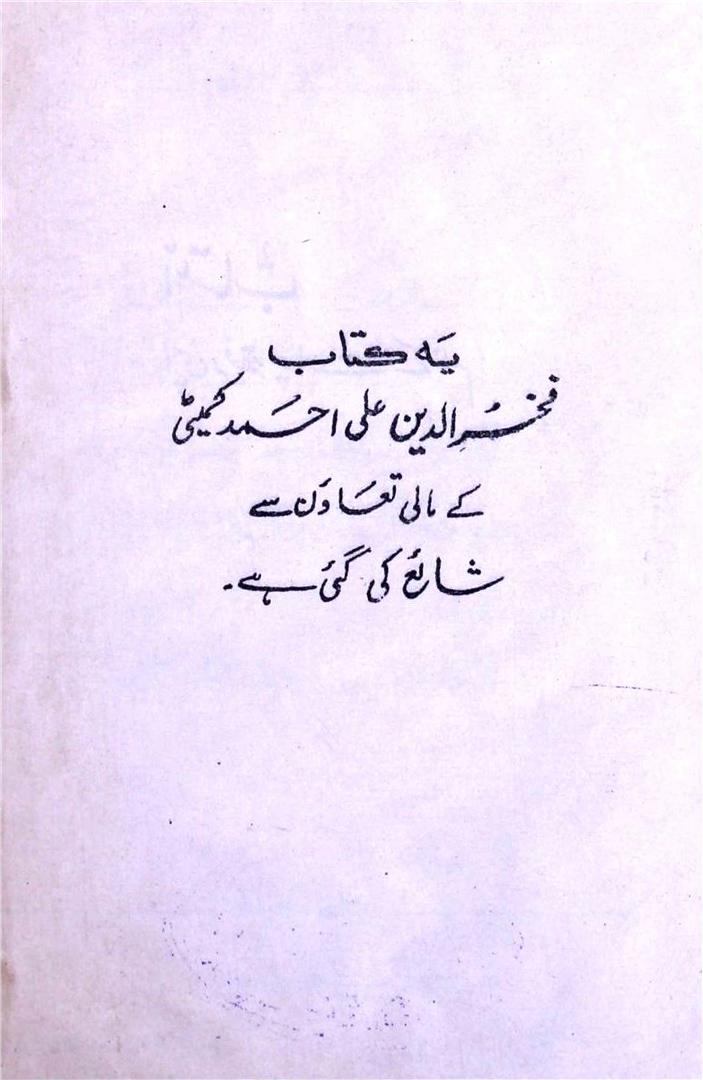 یہ کتاب
فخر الدین علی احمد کمیٹی
کے مالی تعاون سے
شائع کی گئی ہے۔